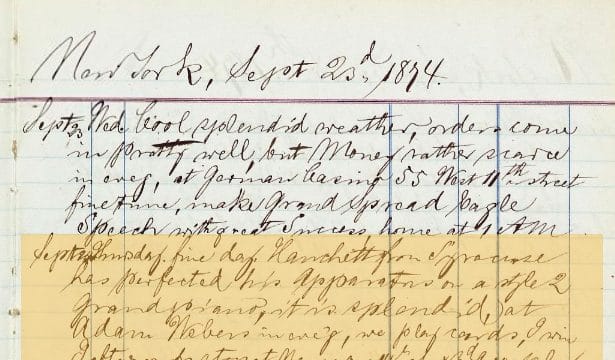 New York, Sept 23d, 1874.
Sept 23 Wed. Cool splendid weather, orders come
in pretty well, but Money rather scarce
in eveg, at German Casino 55 West 11th street
fine time, make Grand spread Eagle
Speech with great Success, home at 1 AM
Sept Thursday. fine day. Hanchett from Syracuse
has perfected his Apparatus on a style 2
grand piano, it is splendid, at
Adam Webers in eve'g, we play cards, I win